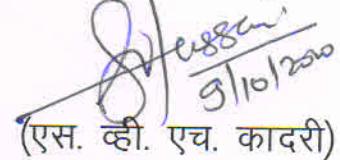 9/10/2020
(एस. व्ही. एच. कादरी)